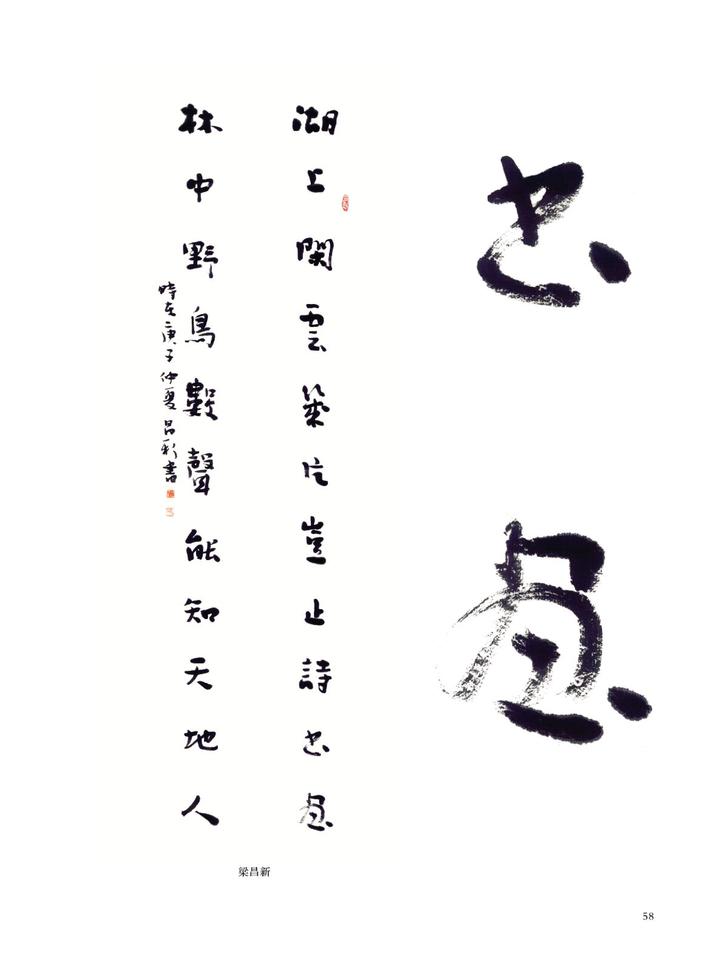 書畫
湖上閑雲幾片豈止詩書畫
林中野鳥數聲能知天地人
時在庚子仲夏昌新書
梁昌新
58